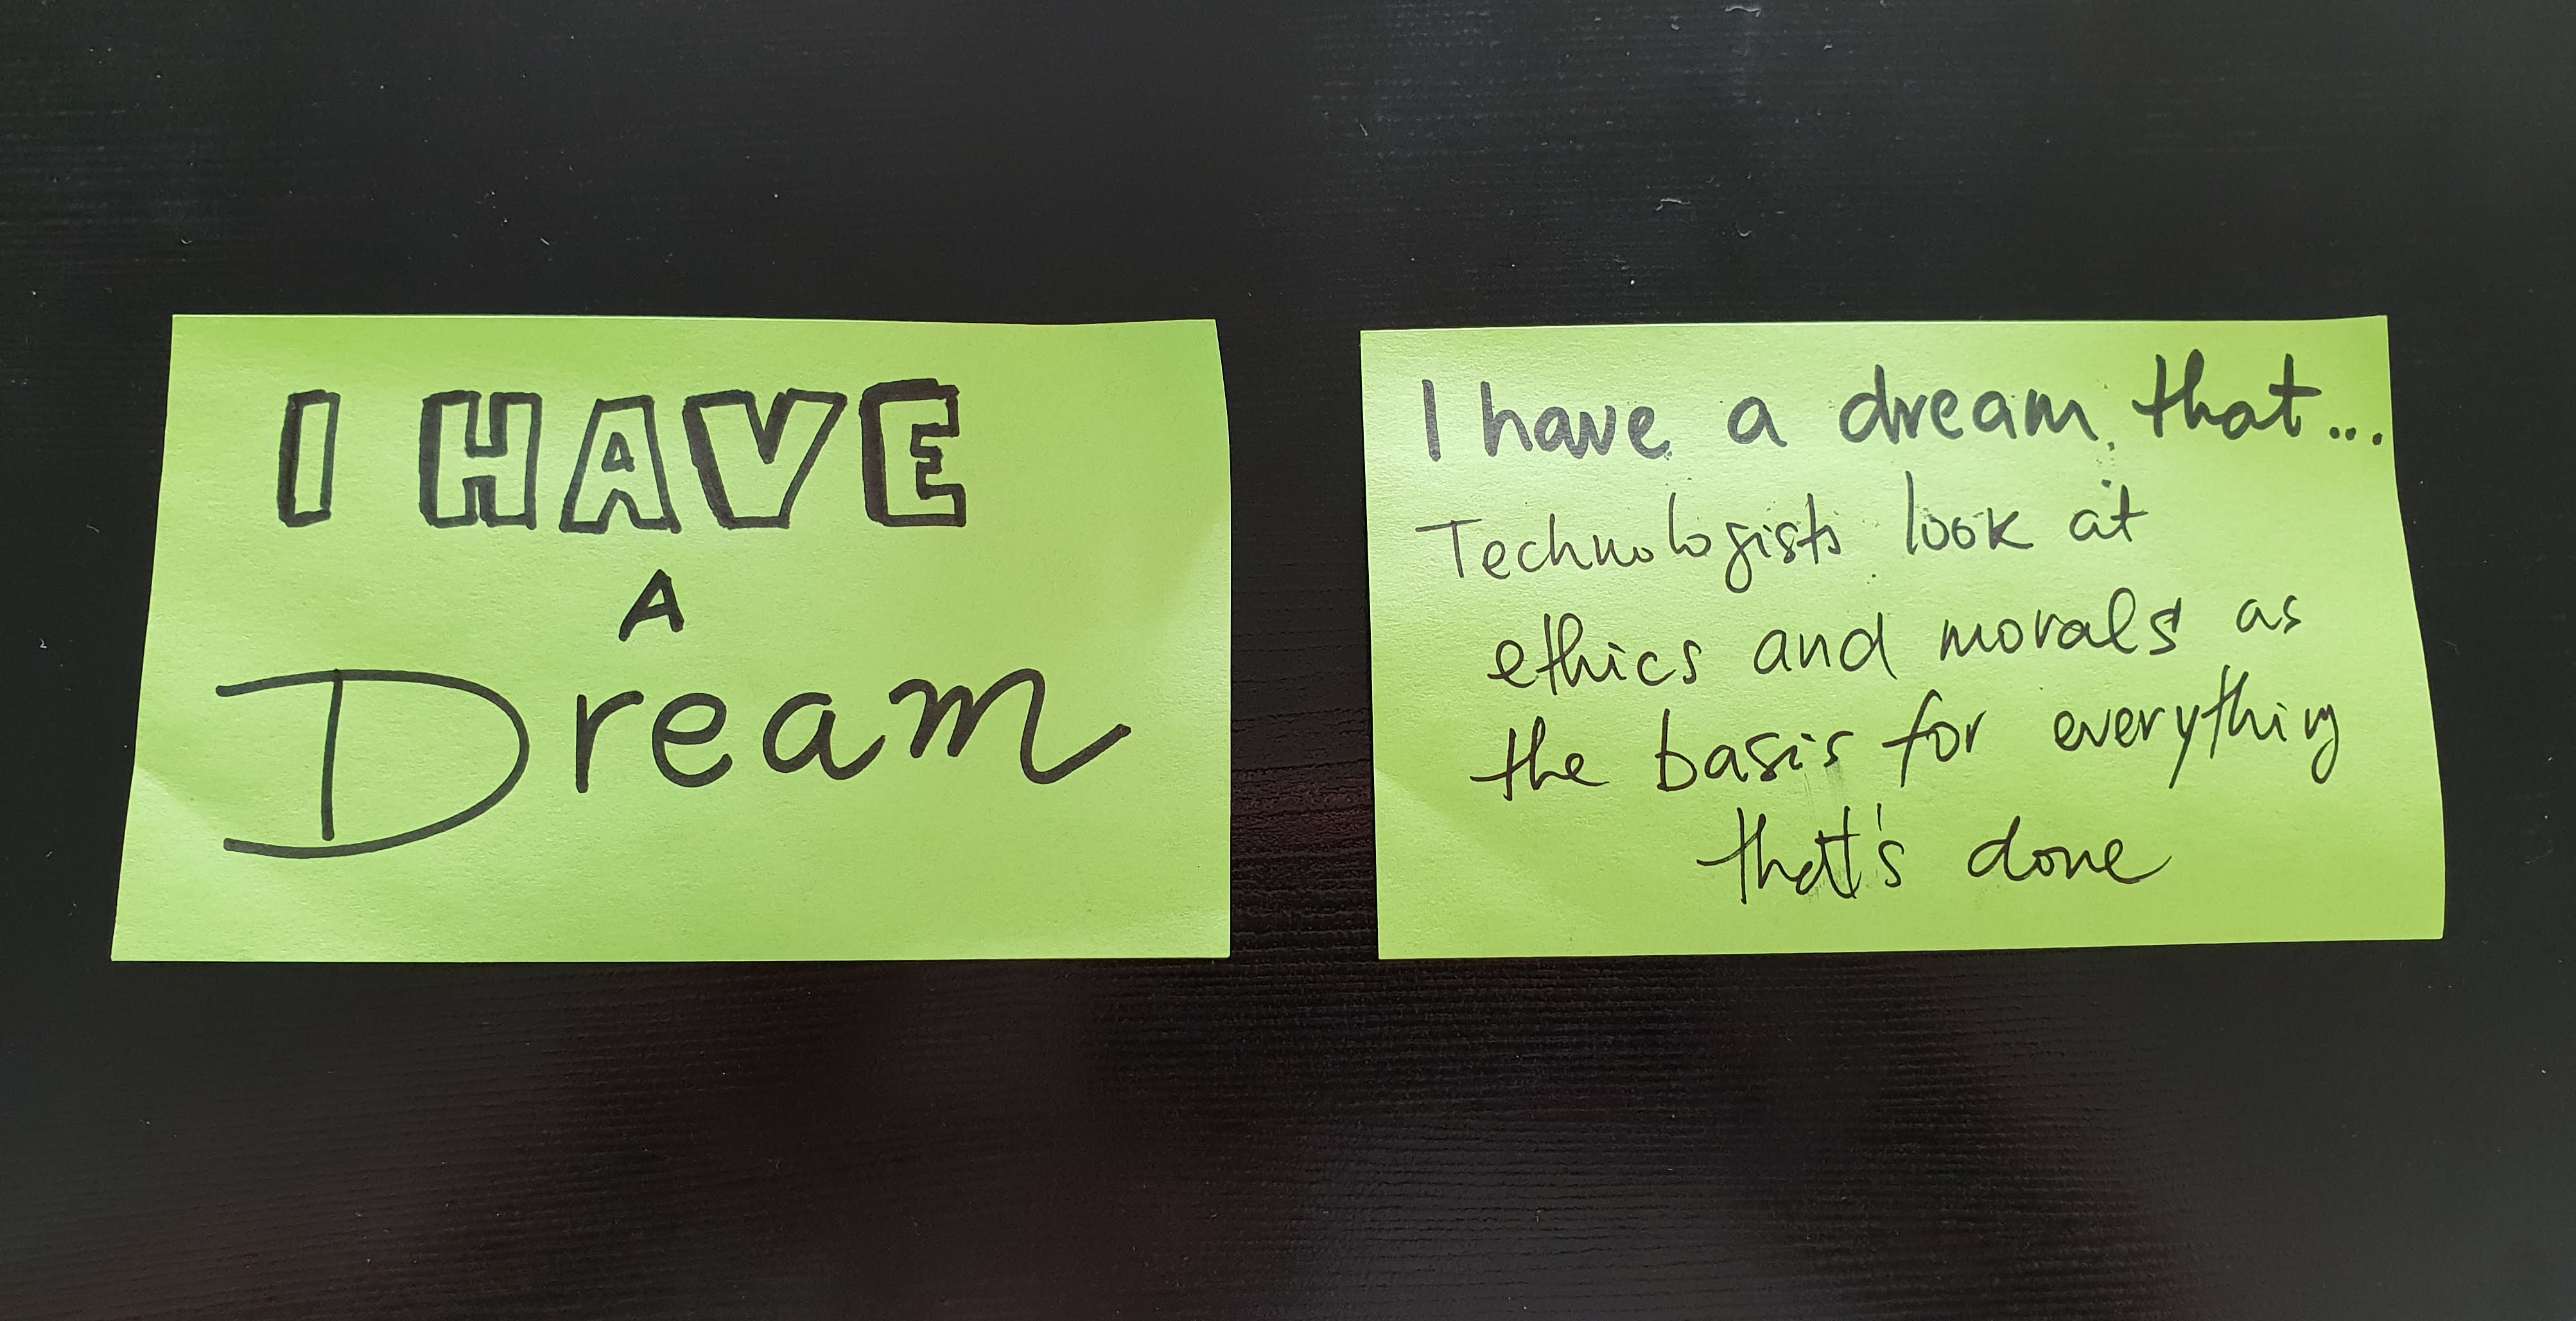 I HAVE
A
Dream
I have a dream that...
Technologists look at
ethics and morals as
the basis for everything
that's done